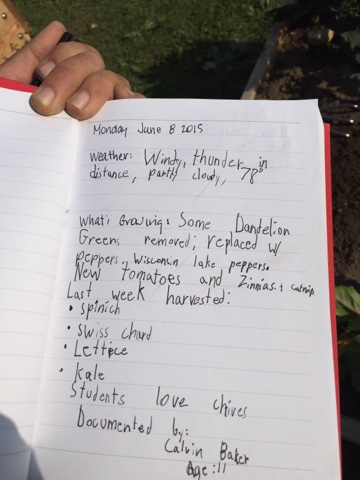 Monday June 8 2015
weather: Windy, thunder in
distance, partly cloudy, 78°
What's Growing: Some Dandelion
Greens removed; replaced w/
peppers. Wisconsin lake peppers.
New tomatoes and Zinnias.+ catnip
Last week harvested:
• spinich
• swiss chard
• Lettice
• Kale
Students love chives
Documented by:
Calvin Baker
Age:11